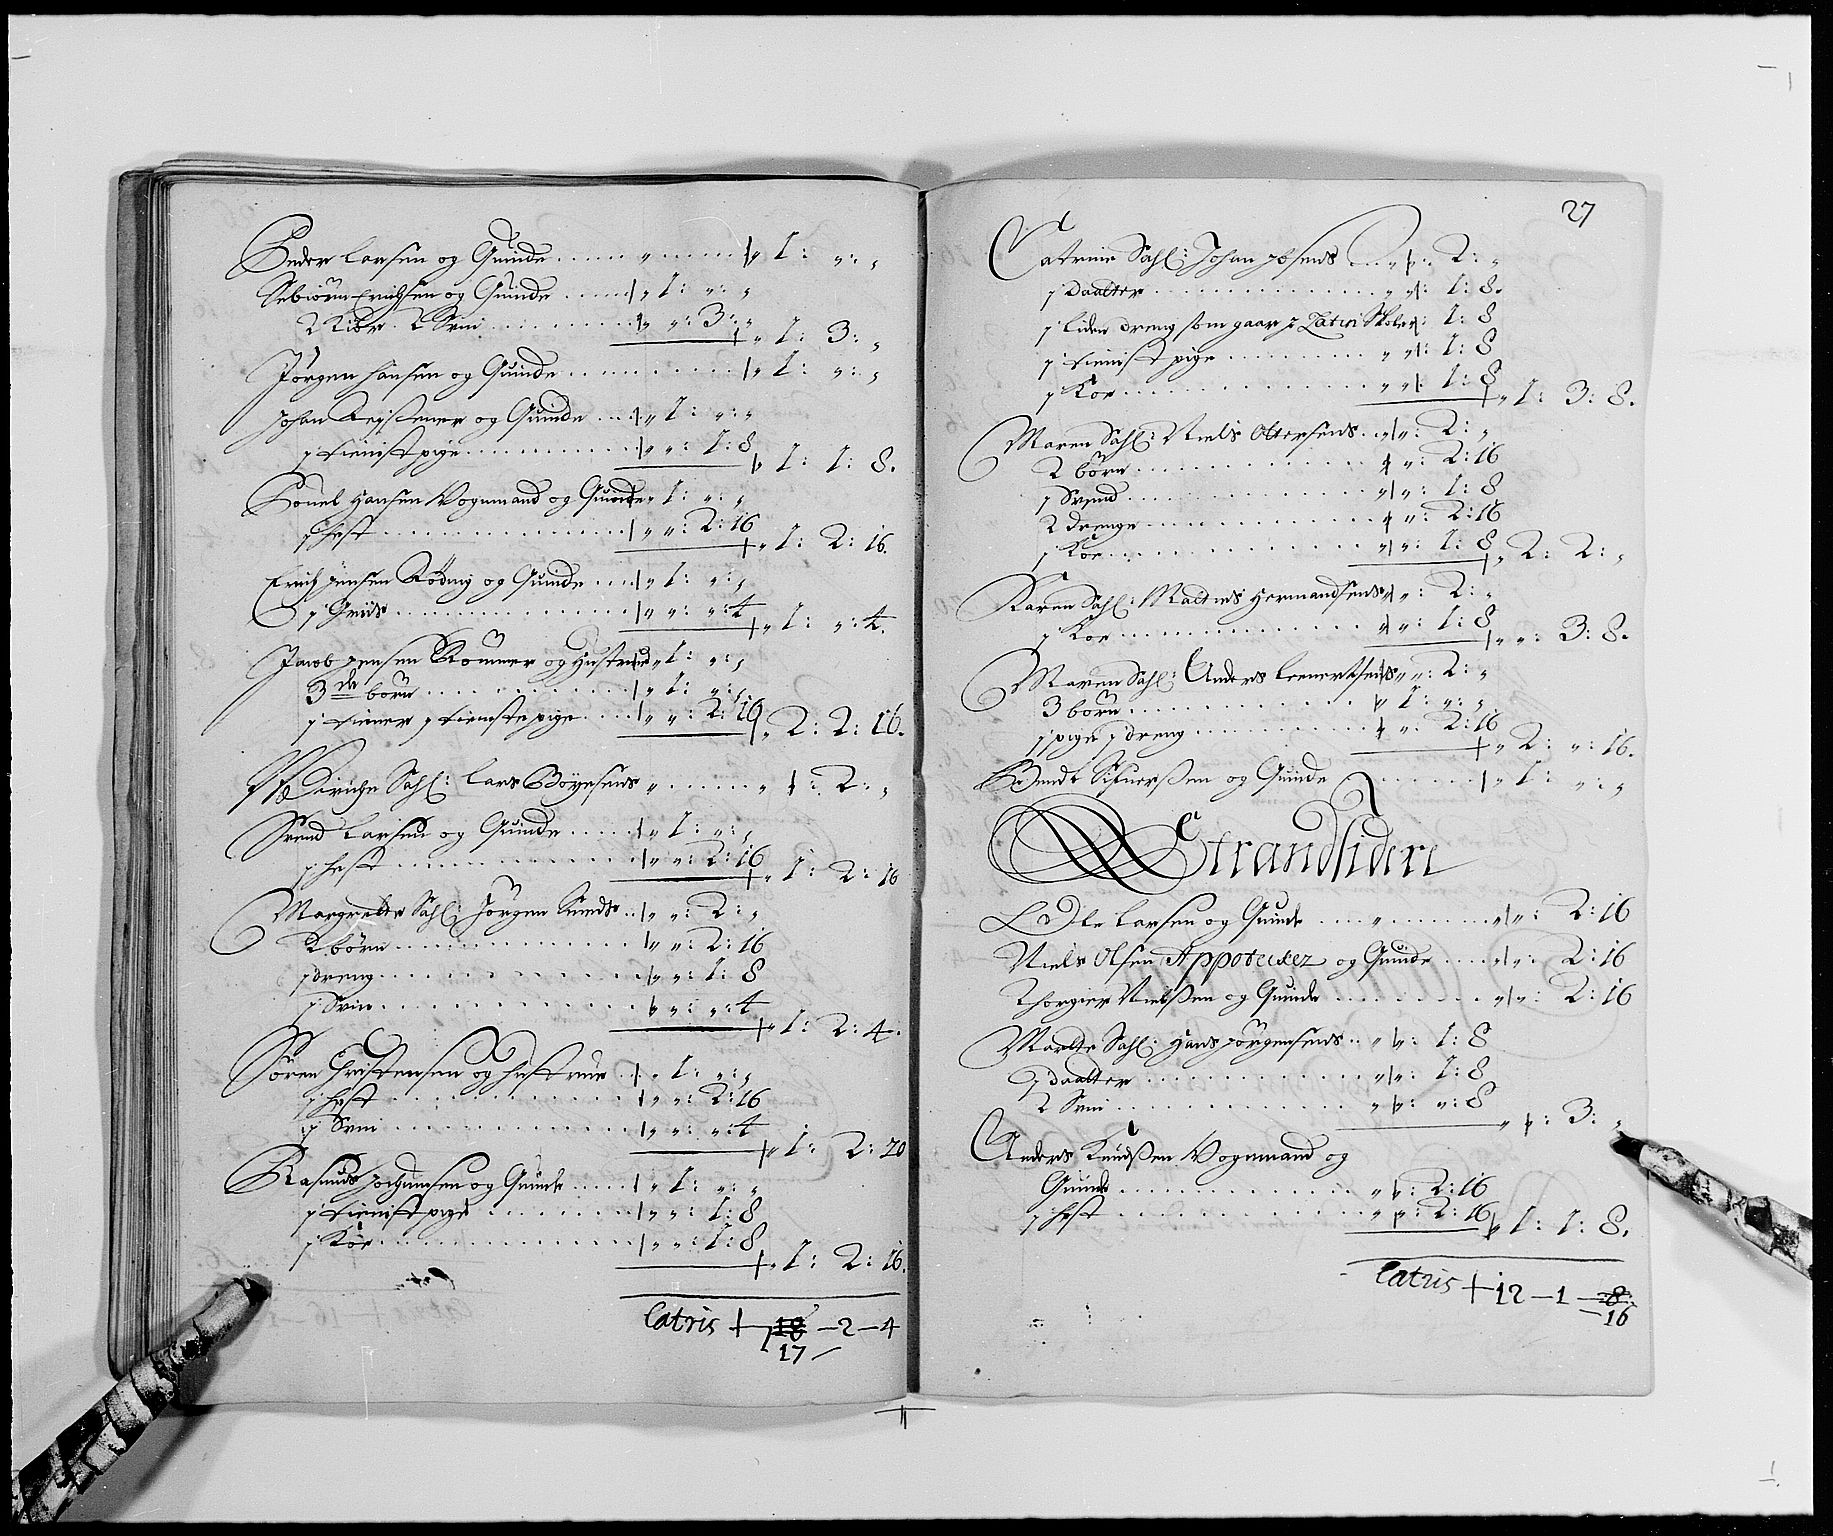 Peder Larsen og Quinde ...... „ ...... „ 1: „: „
Sebiörn Erichsen og Quinde ...... „ 1: „: „
2 Kiör. 2 Svin .......... „ „: 3: „ „ 1: 3: „
Jörgen Hansen og Quinde .......... „ 1: „: „
Johan Keysener og Quinde .... „ 1: „: „
1 tienist pige .......... „ „: 1: 8 „ 1: 1: 8.
Poüel Hansen Vognmand og Quinde „ 1: „: „
1 hest .......... „ „: 2: 16 „ 1: 2: 16.
Erich Jensen Röding og Quinde .... „ 1: „: „
1 Griis .......... „ „: „: 4 „ 1: „: 4.
Jacob Jensen Römmer og Hustrue „ 1: „: „
3de börn .......... „ 1: „: „
1 tiener 1 tieniste pige .... „ „: 2: 16 „ 2: 2: 16.
Diriche Sahl: Lars Böyesens „ ...... „ : 2: „
Svend Larsen og Quinde ...... „ 1: „: „
1 hest .......... „ „: 2: 16 „ 1: 2: 16
Margrette Sahl: Jörgen Sunds .. „ „: 2: „
2 börn .......... „ „: 2: 16
1 dreng .......... „ „: 1: 8
1 Sviin .......... „ „: „: 4 „ 1: 2: 4.
Sören Christensen og hustrue .. „ 1: „: „
1 hest .......... „ „: 2: 16
1 Svin .......... „ „: „: 4 „ 1: 2: 20
Rasmus Jochumsen og Quinde .... „ 1: „: „
1 tienist pige .......... „ „: 1: 8
1 Koe .......... „ „: 1: 8 „ 1: 2: 16.
Latris 18 – 2 – 4
17
27
Catrine Sahl: Johan Josens .. „ „: 2: „
1 Daatter .......... „ „: 1: 8.
1 liden dreng som gaar i Latin Skole „: 1: 8
1 tienist pige .......... „ „: 1: 8
1 Koe .......... „ „: 1: 8 „ 1: 3: 8.
Maren Sahl: Niels Ottersens .. „ „: 2: „
2 börn .......... „: 2: 16
1 Svend .......... „ „: 1: 8
2 drenge .......... „: 2: 16
1 Koe .......... „ „: 1: 8 „ 2: 2: „
Karen Sahl: Matties Hermandsens „ „: 2: „
1 Koe .......... „: 1: 8 „ „: 3: 8.
Maren Sahl: Anders Leenertsens „ „: 2: „
3 börn .......... „ 1: „: „
1 pige 1 dreng .......... „: 2: 16 „ 2: „: 16.
Bendt Sifuerßen og Quinde ...... „ 1: „: „
Strandsidere
Ole Larsen og Quinde .... „ ...... „ „: 2: 16
Niels Olsen Appotecker og Quinde .... „ „: 2: 16
Thorgier Nielßen og Quinde ........ „ „: 2: 16
Marte Sahl: Hans Jörgensens .. „ „: 1: 8
1 daatter .......... „ „: 1: 8
2 Svin .......... „ „: „: 8 „ „: 3: „
Anders Knudßen Vognmand og
Quinde .......... „ „: 2: 16
1 hest .......... „ „: 2: 16 „ 1: 1: 8.
Latris 12 – 1 – 8
16